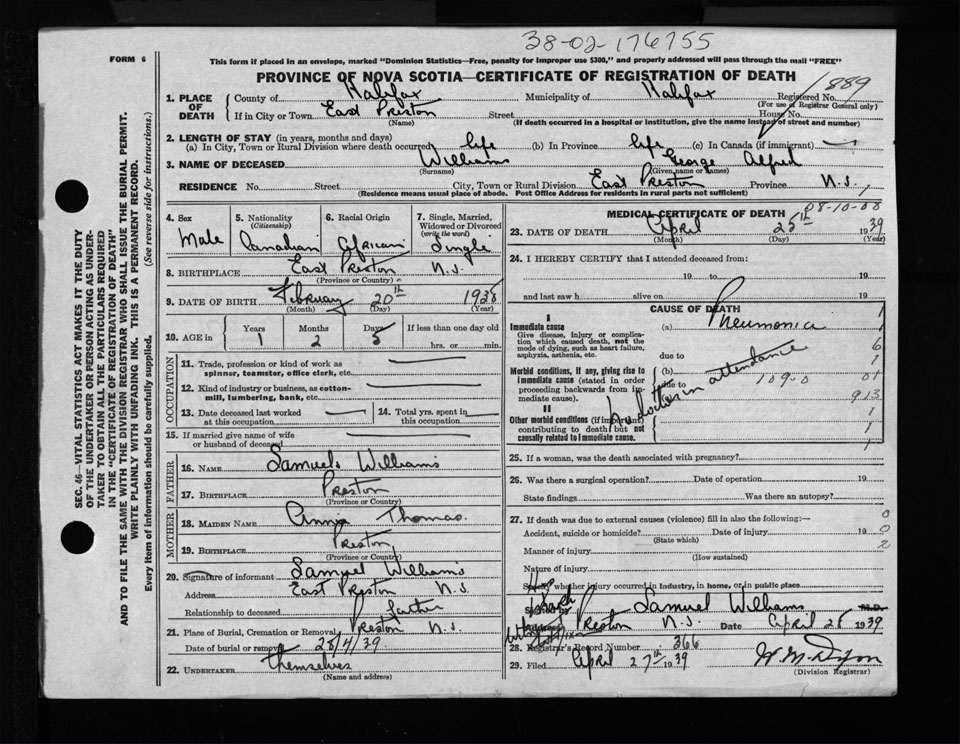 38-02-176755
FORM 6
This form if placed in an envelope, marked "Dominion Statistics—Free, penalty for improper use $300," and properly addressed will pass through the mail "FREE"
PROVINCE OF NOVA SCOTIA—CERTIFICATE OF REGISTRATION OF DEATH
1889
1. PLACE OF DEATH County of Halifax Municipality of Halifax Registered No.
(For use of Registrar General only)
If in City or Town East Preston Street House No.
(Name) (If death occurred in a hospital or institution, give the name instead of street and number)
2. LENGTH OF STAY (in years, months and days)
(a) In City, Town or Rural Division where death occurred life (b) In Province life (c) In Canada (if immigrant) —
3. NAME OF DECEASED Williams George Alfred
(Surname) (Given name or names)
RESIDENCE No. Street City, Town or Rural Division East Preston Province N.S.
(Residence means usual place of abode. Post Office Address for residents in rural parts not sufficient)
4. Sex 5. Nationality 6. Racial Origin 7. Single, Married, Widowed or Divorced
(Citizenship) (write the word)
Male Canadian African Single
8. BIRTHPLACE East Preston N.S.
(Province or Country)
9. DATE OF BIRTH February 20th 1938
(Month) (Day) (Year)
10. AGE in Years Months Days If less than one day old
1 2 5 hrs. or min.
OCCUPATION
11. Trade, profession or kind of work as
spinner, teamster, office clerk, etc. —
12. Kind of industry or business, as cotton-
mill, lumbering, bank, etc. —
13. Date deceased last worked at this occupation — 14. Total yrs. spent in this occupation —
15. If married give name of wife
or husband of deceased —
FATHER
16. NAME Samuel Williams
17. BIRTHPLACE Preston
(Province or Country)
MOTHER
18. MAIDEN NAME Annie Thomas
19. BIRTHPLACE Preston
(Province or Country)
20. Signature of informant Samuel Williams
Address East Preston N.S.
Relationship to deceased father
21. Place of Burial, Cremation or Removal Preston N.S.
Date of burial or removal 28/4/39
22. UNDERTAKER themselves
(Name and address)
MEDICAL CERTIFICATE OF DEATH
08-10-00
23. DATE OF DEATH April 25th 1939
(Month) (Day) (Year)
24. I HEREBY CERTIFY that I attended deceased from:
19 to 19
and last saw h alive on 19
CAUSE OF DEATH
I
Immediate cause (a) Pneumonia
Give disease, injury or complica-
tion which caused death, not the
mode of dying, such as heart failure,
asphyxia, asthenia, etc.
due to
Morbid conditions, if any, giving rise to
immediate cause (stated in order
proceeding backwards from im-
mediate cause).
(b)
due to 109-0
no doctor in attendance
II
Other morbid conditions (if important)
contributing to death but not
causally related to immediate cause.
1
1
6
1
01
913
1
1
1
25. If a woman, was the death associated with pregnancy?
26. Was there a surgical operation? Date of operation 19
State findings Was there an autopsy?
27. If death was due to external causes (violence) fill in also the following:—
Accident, suicide or homicide? Date of injury 19
(State which)
Manner of injury
(How sustained)
Nature of injury
0
0
2
whether injury occurred in industry, in home, or in public place
Samuel Williams M.D.
Preston N.S. Date April 26 1939
28. Registrar's Record Number 366
29. Filed April 27th 1939
(Division Registrar)
SEC. 46—VITAL STATISTICS ACT MAKES IT THE DUTY
OF THE UNDERTAKER OR PERSON ACTING AS UNDER-
TAKER TO OBTAIN ALL THE PARTICULARS REQUIRED
IN THE "CERTIFICATE OF REGISTRATION OF DEATH"
AND TO FILE THE SAME WITH THE DIVISION REGISTRAR WHO SHALL ISSUE THE BURIAL PERMIT.
WRITE PLAINLY WITH UNFADING INK. THIS IS A PERMANENT RECORD.
Every item of information should be carefully supplied. (See reverse side for instructions.)